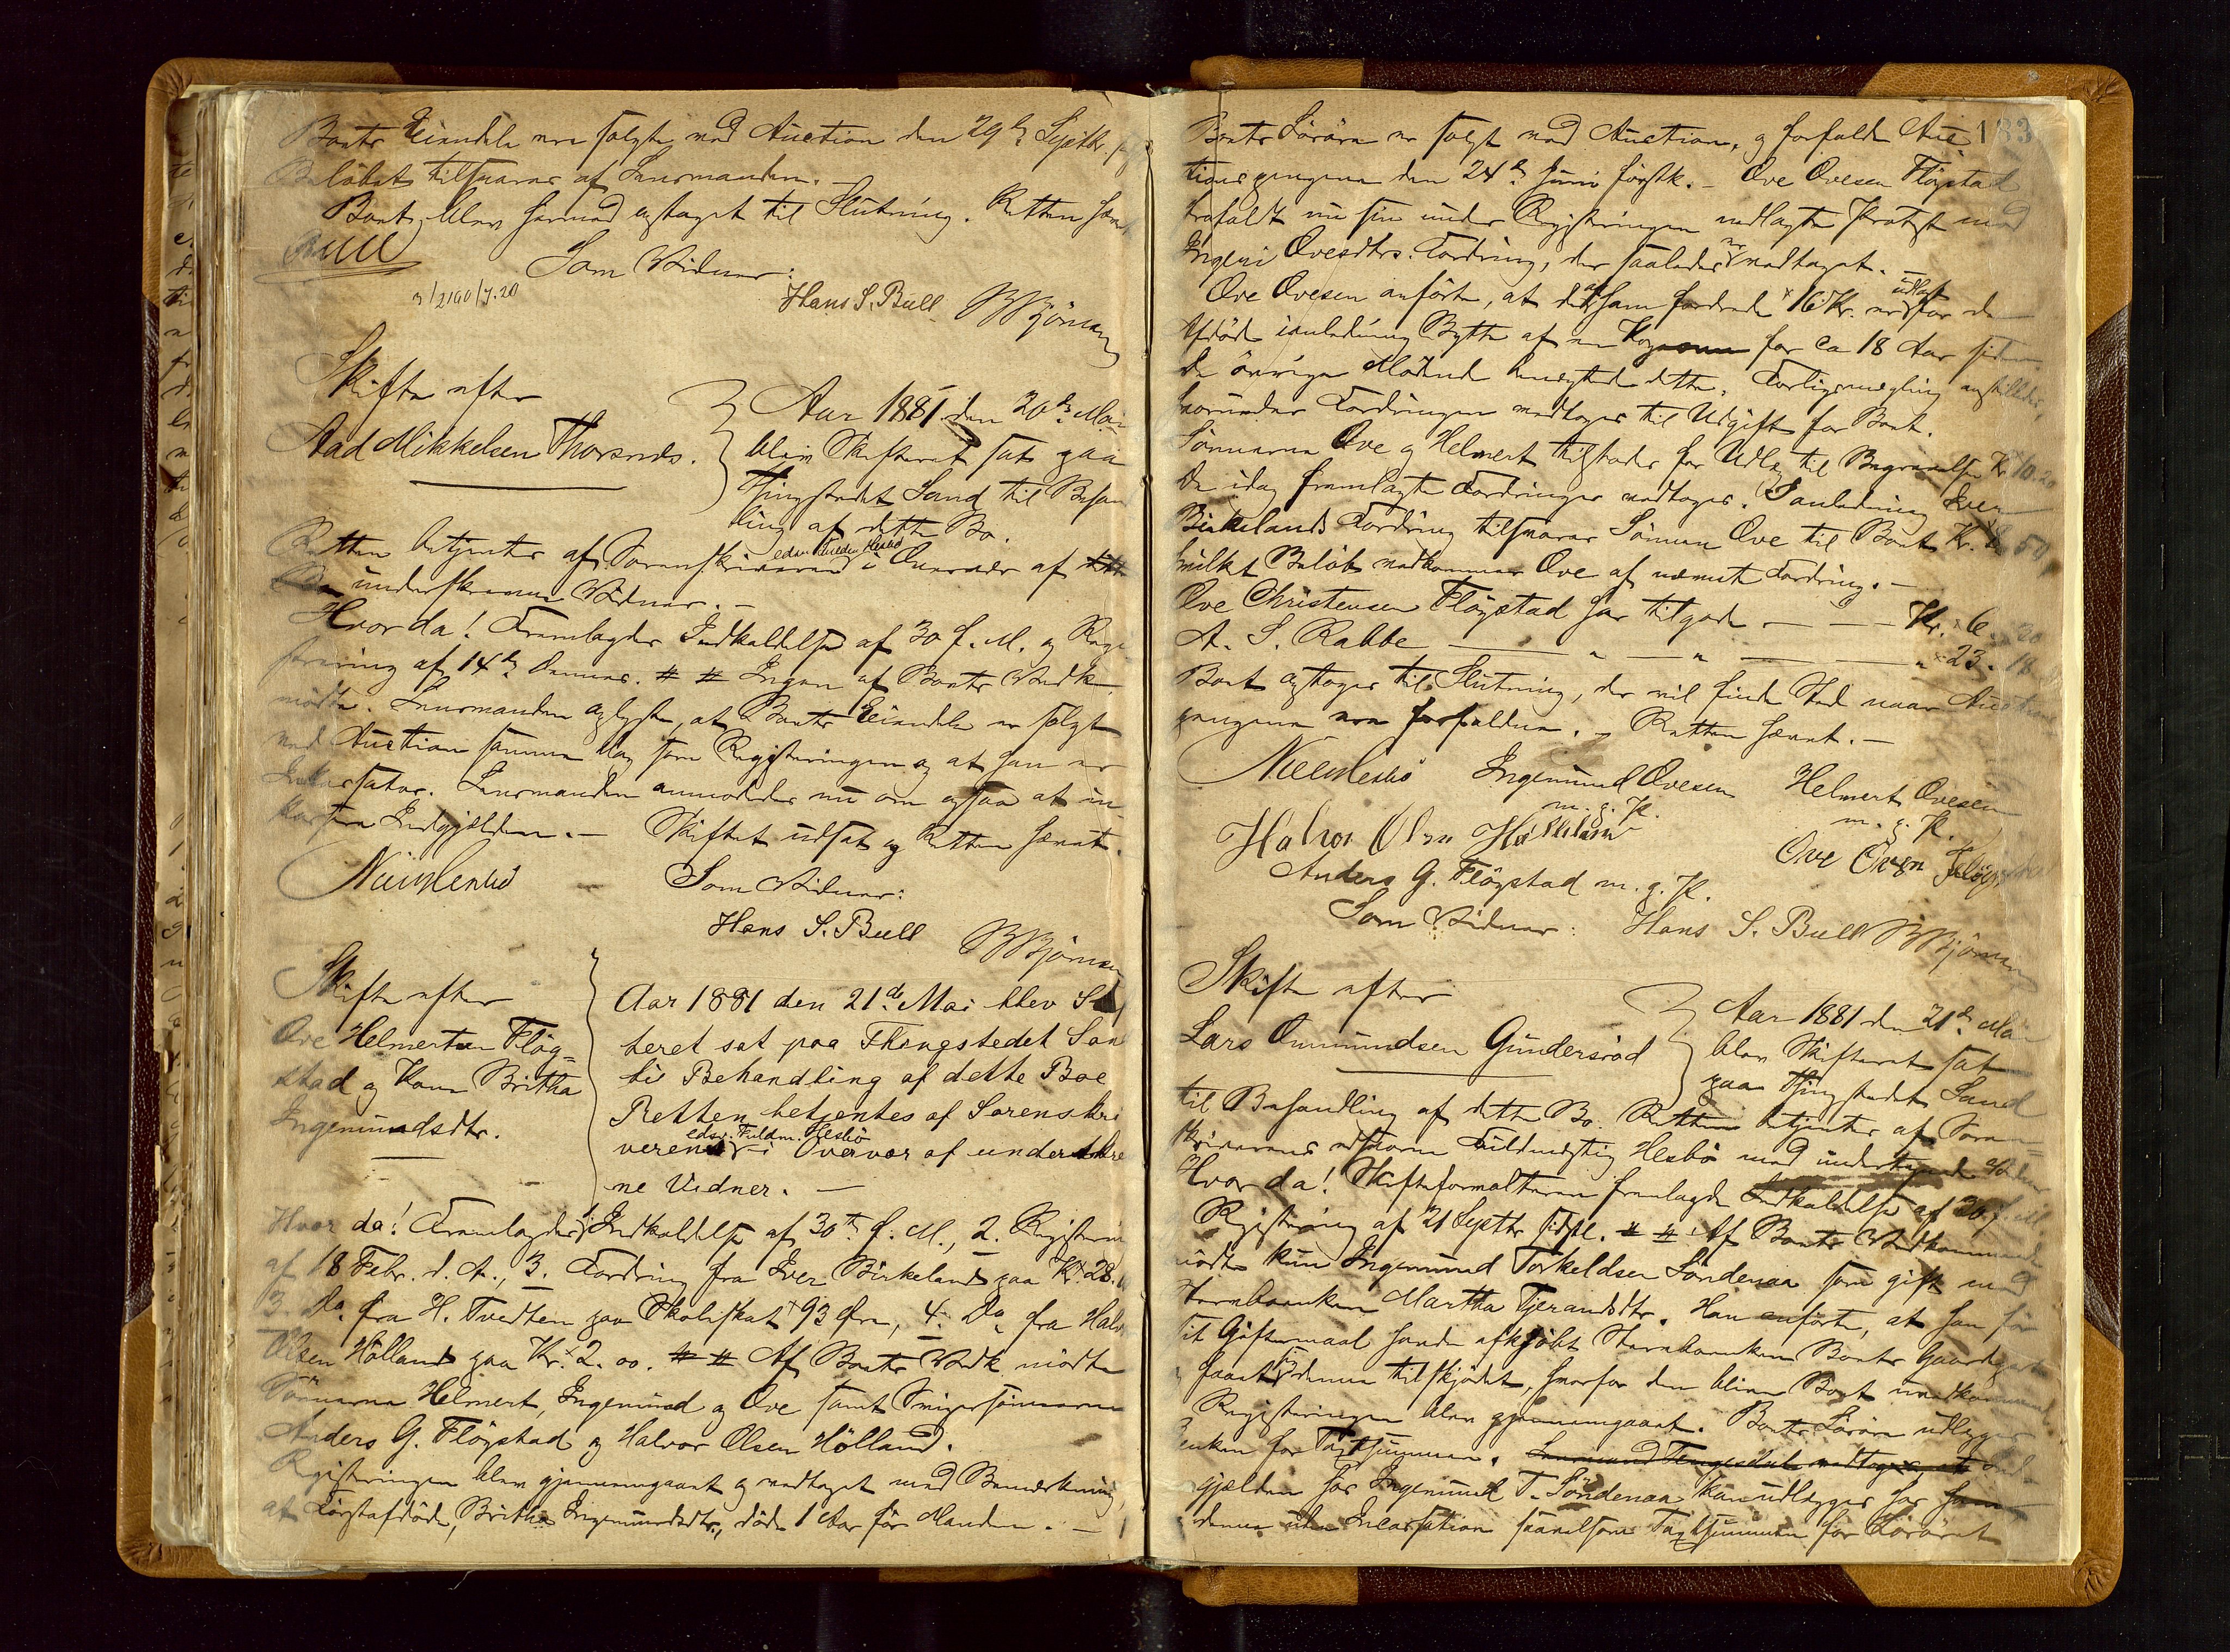 Boets Eiendele ere solgte ved Auction den 29de Septbr.
Beløbet tilsvarer af Lensmanden. —
Boet blev hermed optaget til Slutning. Retten hævet
Som Vidner:
Hans S. Bull BBjörnsen
Skifte efter
Aad Mikkelsen Thorsnes.
Aar 1881 den 20de Mai
blev Skifteret sat paa
Thingstedet Sand til Behand
ling af dette Bo.
Retten betjentes af Sorenskriverens edsv. Fuldm. Hesbö i Overvær af
underskrevne Vidner. —
Hvor da! Fremlagdes Indkaldelse af 30 f. M. og Regi
strering af 14de # # Ingen af Boets Vedk.
mödte. Lensmanden oplyste, at Boets Eiendele er solgt
ved Auction samme Dag som Registreringen og at han er
Inkassator. Lensmanden anmodedes nu om ogsaa at in
kassere Indgjælden. — Skiftet udsat og Retten hævet.
Som Vidner:
Hans S. Bull BBjörnsen
Skifte efter
Ove Helmertsen Flög=
stad og Kone Britha
Ingemundsdtr.
Aar 1881 den 21de Mai blev Sk
teret sat paa Thingstedet San
til Behandling af dette Boe
Retten betjentes af Sorenskri
verens edsv. Fuldm. Hesbö i Overvær af underskre
ne Vidner. —
Hvor da! Fremlagdes 1. Indkaldelse af 30te f. M., 2. Registrering
af 18 Febr. d. A., 3. Fordring fra Iver Birkeland paa Kr. 28.
3. Do. fra H. Tvedten paa Skoleskat 93 Øre, 4. Do. fra Halv
Olsen Hölland paa Kr. 2.00. # # Af Boets Vedk. mödte
Sönnerne Helmert, Ingemund og Ove samt Svigersönnerne
Anders G. Flögstad og Halvor Olsen Hölland.
Registreringen blev gjennemgaaet og vedtaget med Bemærkning,
at Förstafdöde, Britha Ingemundsdtr., döde 1 Aar för Manden. —
183
Boets Lösöre er solgt ved Auction, og forfalde Auc
tionspengene den 24de Juni förstk. — Ove Ovesen Flögstad
frafaldt nu sin under Registreringen nedlagte Protest mod
Ingeri Ovesdtrs. Fordring, der saaledes er vedtaget.
Ove Ovesen anförte, at den af ham fordrede 16 Kr. er udlagt for de
Afdöde i anledning Bytte af en for ca 18 Aar siden
De övrige Mödende benegtede dette. Forligsmegling anstilledes,
hvorunder Fordringen vedtoges til Udgift for Boet.
Sönnerne Ove og Helmert tilstodes for Udlæg til Begravelse Kr. 10.20
De idag fremlagte Fordringer vedtoges. I anledning Iver
Birkelands Fordring tilsvarer Sönnen Ove til Boet Kr. 50,
hvilket Belöb vedkommer Ove af nævnte Fordring. —
Ove Christensen Flögstad har tilgode — — — Kr. 6. 20
A. S. Rabbe — " — " — — " 23. 18
Boet optoges til Slutning, der vil finde Sted naar Auctions
pengene ere forfaldne. — Retten hævet. —
Ingemund Ovesen Helmert Ovesen
m. g. P. m. g. P.
Halvor Olsen Hölland
Ove Ovesen Flögstad
Anders G. Flögstad m. g. P.
Som Vidner: Hans S. Bull BBjörnsen
Skifte efter
Lars Ommundsen Gundersröd
Aar 1881 den 21de Mai
blev Skifteret sat
paa Thingstedet Sand
til Behandling af dette Bo. Retten betjentes af Soren=
skriverens edsvorne Fuldmægtig Hesbö med undertegnede Vidner
Hvor da! Skifteforvalteren fremlagde Indkaldelse af 30 f. M.
Registrering af 21 Septbr. sidstl. # # Af Boets Vedkommende
mödte kun Ingemund Torkeldsen Söndenaa som gift med
Stervboenken Martha Tjerandsdtr. Han anförte, at han för
sit Giftermaal havde afkjöbt Stervboenken Boets Gaardpart
faaet denne tilskjödet, hvorfor den bliver Boet uvedkommende.
Registreringen blev gjennemgaaet. Boets Lösöre udlægges
Enken for Taxtsummen. Lensmand Tengesdal vedtoges, at Ind
gjælden hos Ingemund T. Söndenaa kan udlægges hos ham
denne uden Incassation saavelsom Taxtsummen for Lösöret